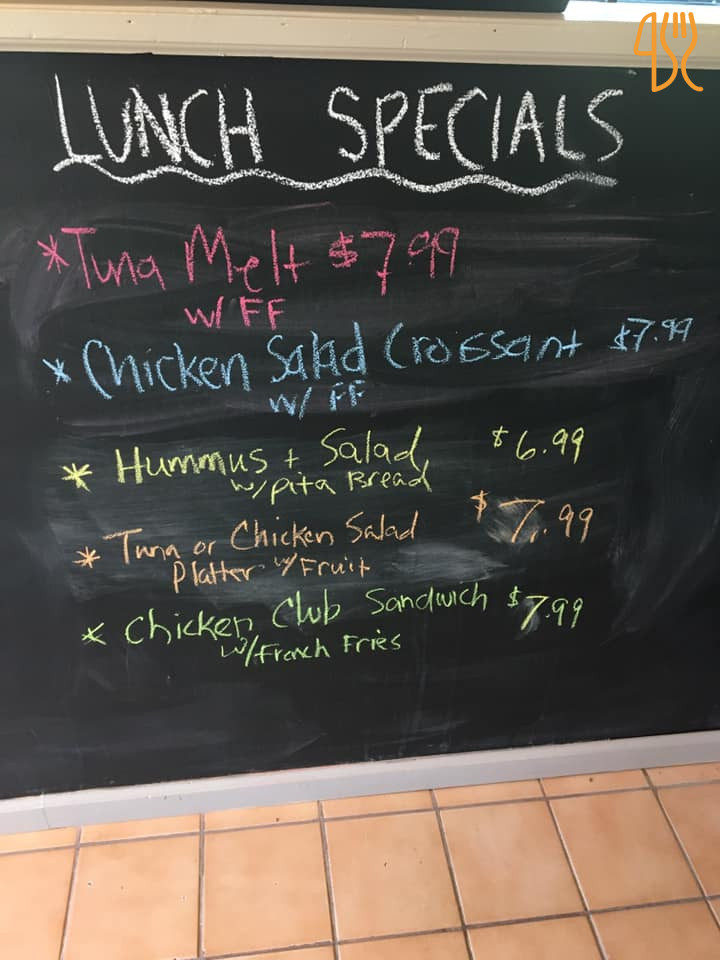 LUNCH SPECIALS
*Tuna Melt $7.99
w/ FF
* Chicken Salad Croissant $7.99
w/ FF
* Hummus + Salad $6.99
w/pita Bread
* Tuna or Chicken Salad $7.99
Platter w/ Fruit
* Chicken Club Sandwich $7.99
w/French Fries